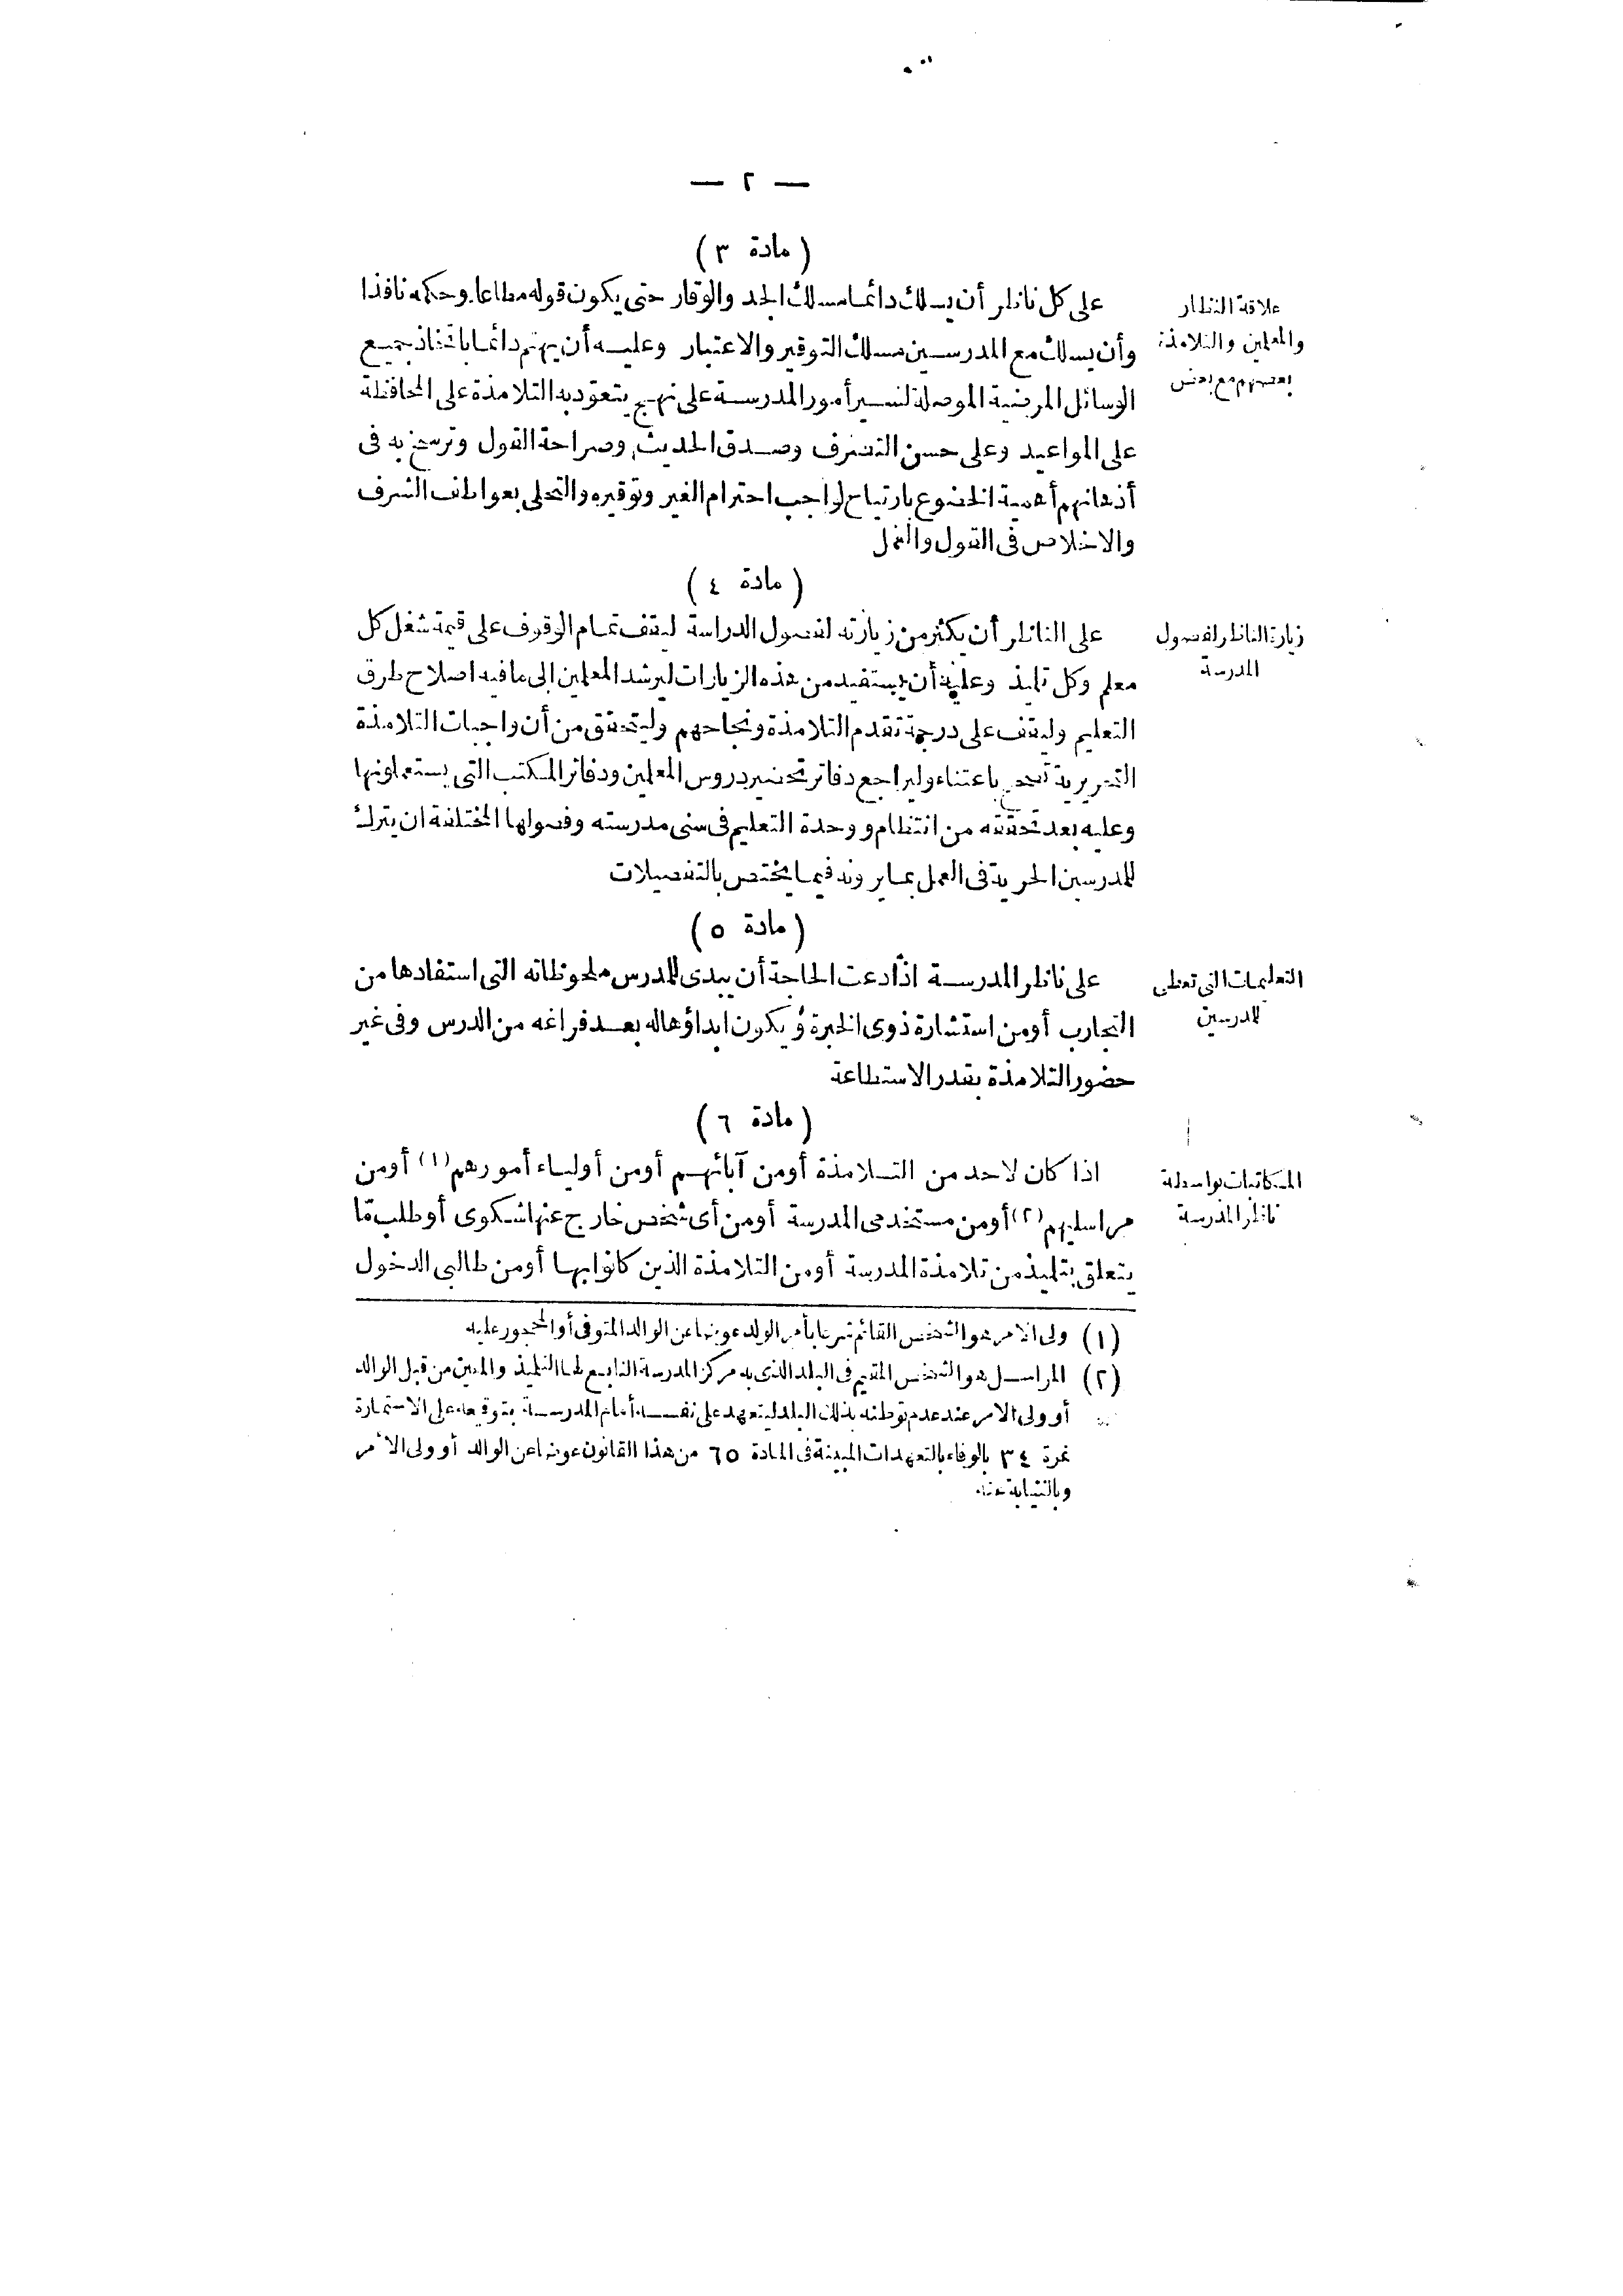 — ٢ —
( مادة ٣ )
علاقة النظار
والمعلمين والتلامذة
بعضهم مع بعض
على كل ناظر أن يسلك دائما مسلك الجد والوقار حتى يكون قوله مطاعا وحكمه نافذا
وأن يسلك مع المدرسين مسلك التوقير والاعتبار وعليه أن يهتم دائما باتخاذ جميع
الوسائل المرضية الموصلة لسير أمور المدرسة على نهج يتعود به التلامذة على المحافظة
على المواعيد وعلى حسن التصرف وصدق الحديث وصراحة القول وترسخ به فى
أذهانهم أهمية الخضوع بارتياح لواجب احترام الغير وتوقيره والتحلى بعواطف الشرف
والاخلاص فى القول والعمل
( مادة ٤ )
زيارة الناظر لفصول
المدرسة
على الناظر أن يكثر من زيارته لفصول الدراسة ليقف تمام الوقوف على قيمة شغل كل
معلم وكل تلميذ وعليه أن يستفيد من هذه الزيارات ليرشد المعلمين الى ما فيه اصلاح طرق
التعليم وليقف على درجة تقدم التلامذة ونجاحهم وليتحقق من أن واجبات التلامذة
التحريرية تصحح باعتناء وليراجع دفاتر تحضير دروس المعلمين ودفاتر المكتب التى يستعملونها
وعليه بعد تحققه من انتظام ووحدة التعليم فى سنى مدرسته وفصولها المختلفة ان يترك
للمدرسين الحرية فى العمل بما يرونه فيما يختص بالتفصيلات
( مادة ٥ )
التعليمات التى تعطى
للمدرسين
على ناظر المدرسة اذا دعت الحاجة أن يبدى للمدرس ملحوظاته التى استفادها من
التجارب أو من استشارة ذوى الخبرة ويكون ابداؤها له بعد فراغه من الدرس وفى غير
حضور التلامذة بقدر الاستطاعة
( مادة ٦ )
المكاتبات بواسطة
ناظر المدرسة
اذا كان لاحد من التلامذة أو من آبائهم أو من أولياء أمورهم (١) أو من
مراسليهم (٢) أو من مستخدمى المدرسة أو من أى شخص خارج عنها شكوى أو طلب مّا
يتعلق بتلميذ من تلامذة المدرسة أو من التلامذة الذين كانوا بها أو من طالبى الدخول
(١) ولى الامر هو الشخص القائم شرعا بأمر الولد عوضا عن الوالد المتوفى أو المحجور عليه
(٢) المراسل هو الشخص المقيم فى البلد الذى به مركز المدرسة التابع لها التلميذ والمعين من قبل الوالد
أو ولى الامر عند عدم توطنه بذلك البلد ليتعهد على نفسه أمام المدرسة بتوقيعه على الاستمارة
نمرة ٣٤ بالوفاء بالتعهدات المبينة فى المادة ٦٥ من هذا القانون عوضا عن الوالد أو ولى الأمر
وبالنيابة عنه